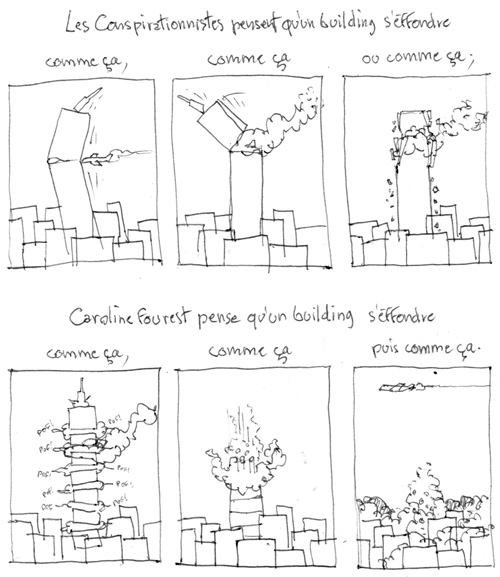 Les Conspirationnistes pensent qu'un building s'éffondre
comme ça,
comme ça
ou comme ça;
Caroline Fourest pense qu'un building s'éffondre
comme ça,
comme ça
puis comme ça.
pof! Pof!
pof!
pof! Pof!
pof! Pof!
pof. Pof!